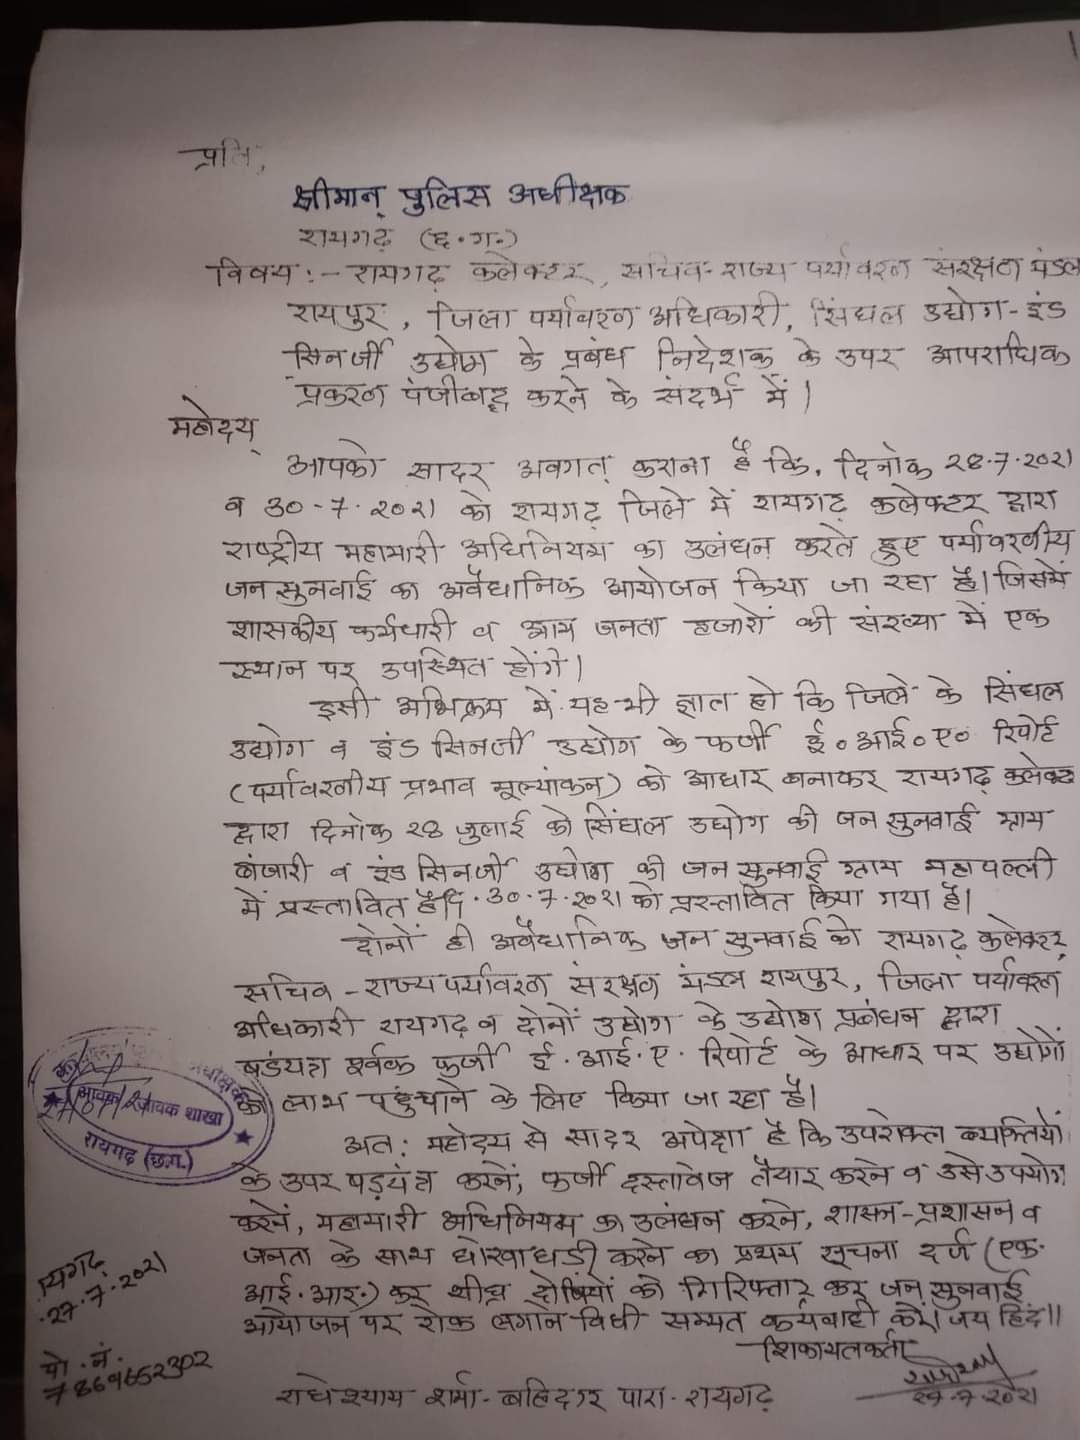 प्रति,
श्रीमान् पुलिस अधीक्षक
रायगढ़ (छ.ग.)
विषय :- रायगढ़ कलेक्टर, सचिव-राज्य पर्यावरण संरक्षण मंडल
रायपुर, जिला पर्यावरण अधिकारी, सिंघल उद्योग-इंड
सिनर्जी उद्योग के प्रबंध निदेशक के उपर आपराधिक
प्रकरण पंजीबद्ध करने के संदर्भ में।
महोदय्
आपको सादर अवगत् कराना है कि, दिनांक 28.7.2021
व 30-7.2021 को रायगढ़ जिले में रायगढ़ कलेक्टर द्वारा
राष्ट्रीय महामारी अधिनियम का उलंघन करते हुए पर्यावरणीय
जन सुनवाई का अवैधानिक आयोजन किया जा रहा है। जिसमें
शासकीय कर्मचारी व आम जनता हजारों की संख्या में एक
स्थान पर उपस्थित होंगे।
इसी अभिक्रम में यह भी ज्ञात हो कि जिले के सिंघल
उद्योग व इंड सिनर्जी उद्योग के फर्जी ई०आई०ए० रिपोर्ट
(पर्यावरणीय प्रभाव मूल्यांकन) को आधार बनाकर रायगढ़ कलेक्टर
द्वारा दिनांक 28 जुलाई को सिंघल उद्योग की जन सुनवाई ग्राम
बंजारी व इंड सिनर्जी उद्योग की जन सुनवाई ग्राम महापल्ली
में प्रस्तावित है दि.30.7.2021 को प्रस्तावित किया गया है।
दोनों ही अवैधानिक जन सुनवाई को रायगढ़ कलेक्टर,
सचिव-राज्य पर्यावरण संरक्षण मंडल रायपुर, जिला पर्यावरण
अधिकारी रायगढ़ व दोनों उद्योग के उद्योग प्रबंधन द्वारा
षडंयत्र पूर्वक फर्जी ई.आई.ए. रिपोर्ट के आधार पर उद्योगों
को लाभ पहुंचाने के लिए किया जा रहा है।
अत: महोदय से सादर अपेक्षा है कि उपरोक्त व्यक्तियों
के उपर षड़यंत्र करनें, फर्जी दस्तावेज तैयार करने व उसे उपयोग
करनें, महामारी अधिनियम का उलंघन करने, शासन-प्रशासन व
जनता के साथ धोखाधडी करने का प्रथम सूचना दर्ज (एफ.
आई.आर.) कर शीघ्र दोषियों को गिरिफ्तार कर जन सुनवाई
आयोजन पर रोक लगाने विधी सम्मत कार्यवाही करें। जय हिंद।।
शिकायतकर्ता
29.7.2021
राधेश्याम शर्मा- बहिदार पारा-रायगढ़
रायगढ़
.27.7.2021
मो.नं.
7869652302
आवक/जावक शाखा
रायगढ़ (छ.ग.)